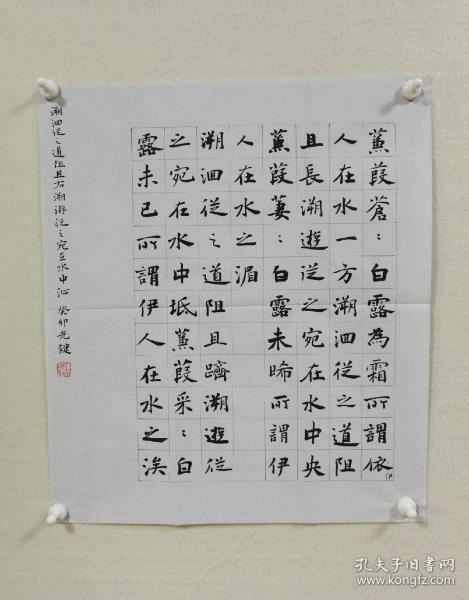 蒹葭蒼：白露為霜所謂依
伊
人在水一方溯洄從之道阻
且長溯遊從之宛在水中央
蒹葭萋：白露未晞所謂伊
人在水之湄
溯洄從之道阻且躋溯遊從
之宛在水中坻蒹葭采：白
露未已所謂伊人在水之涘
溯洄從之道阻且右溯游從之宛在水中沚 癸卯光鍵
孔夫子旧书网
www.kongfz.com